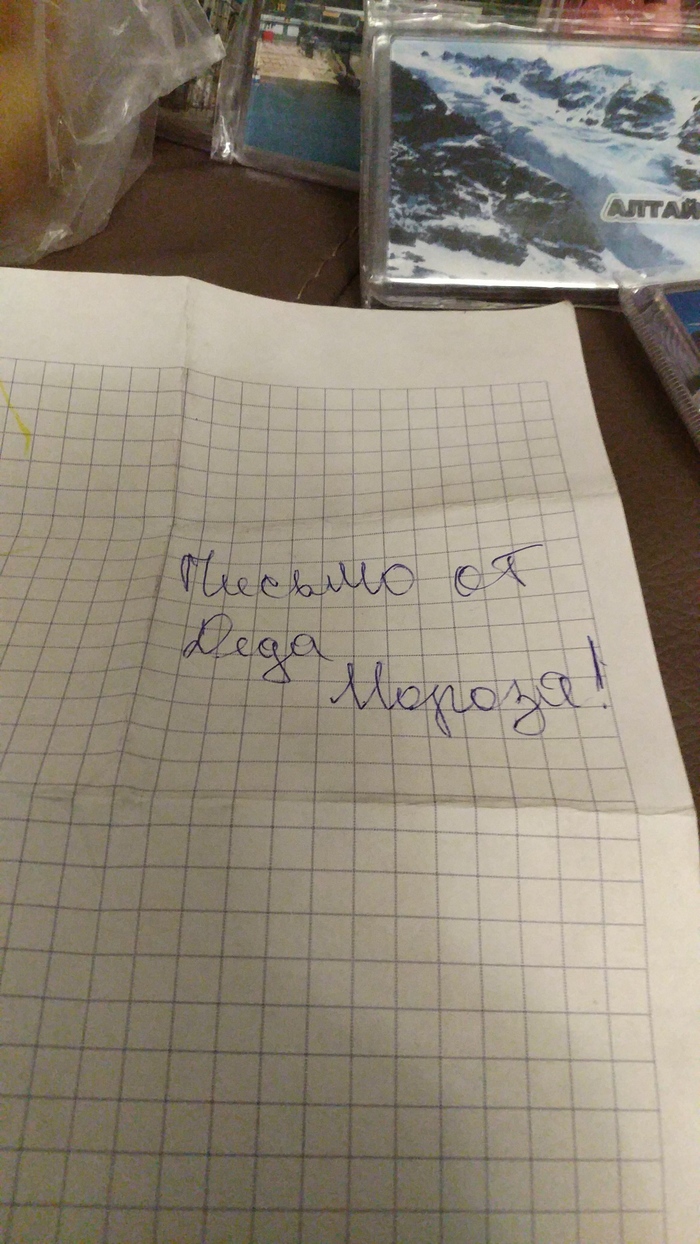 АЛТАЙ
Письмо от
Деда
Мороза!